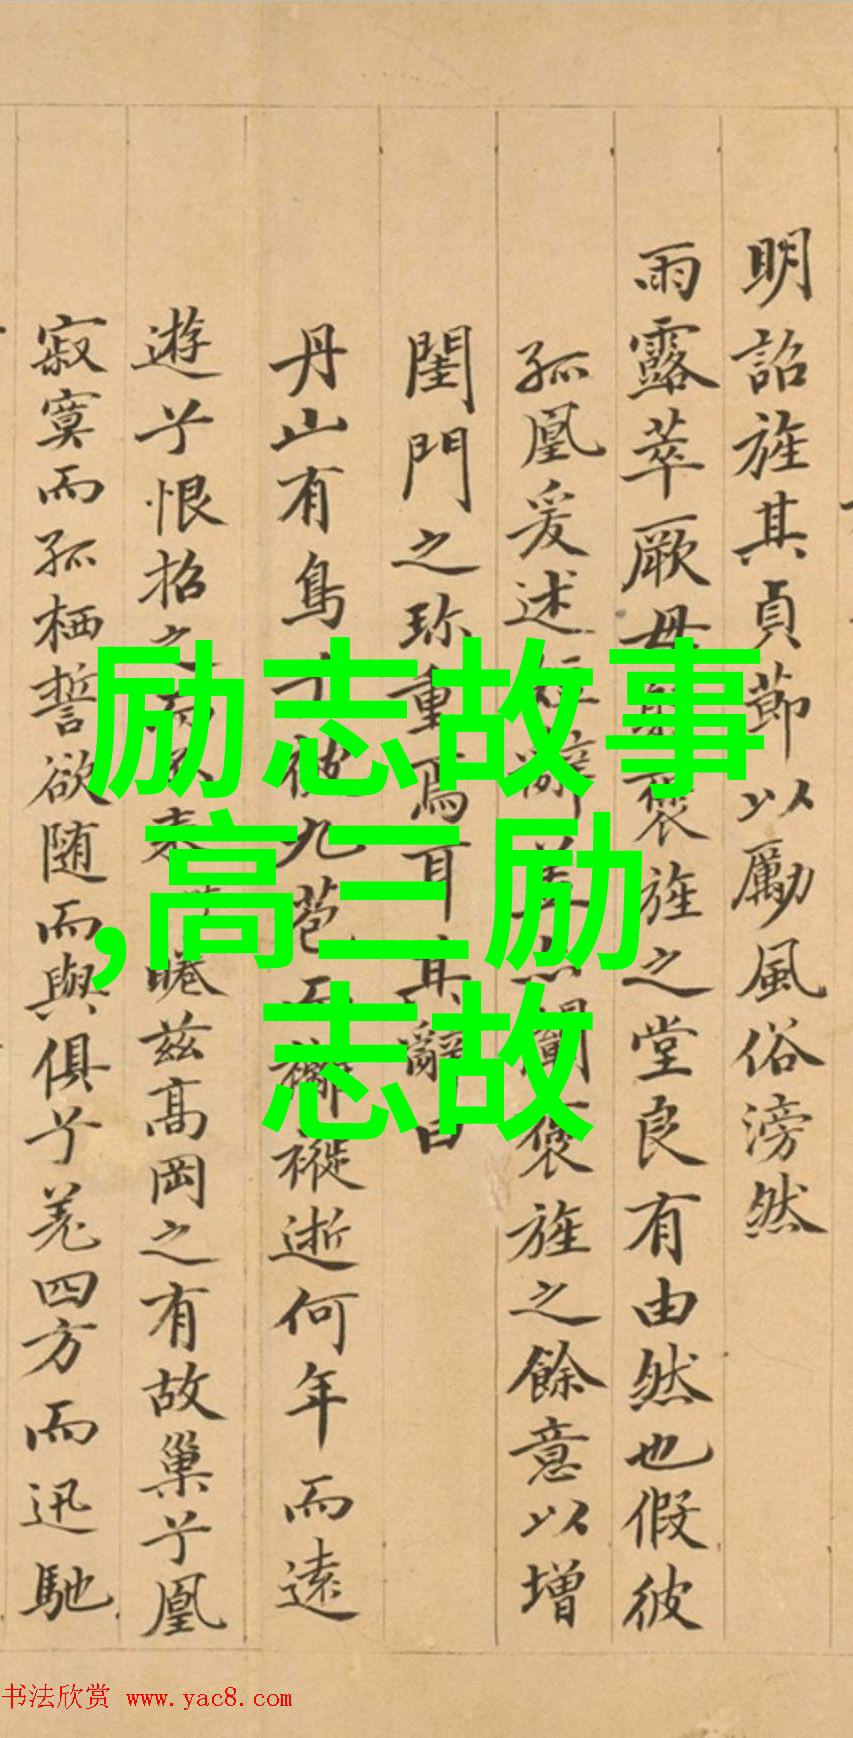 明詔旌其貞節以勵風俗滂然
雨露萃厥母褒旌之堂良有由然也假彼
孤凰爰述短辭褒旌之餘意以增
閨門之珎重焉耳其辭曰
丹山有鳥兮彼九苞而褵褷逝何年而遠
遊兮恨招之而不来兮睠茲高岡之有故巢兮凰
寂寞而孤栖誓欲随而與俱兮羌四方而迅馳
励志故事
,高三励
志故
书法欣赏 www.yac8.com